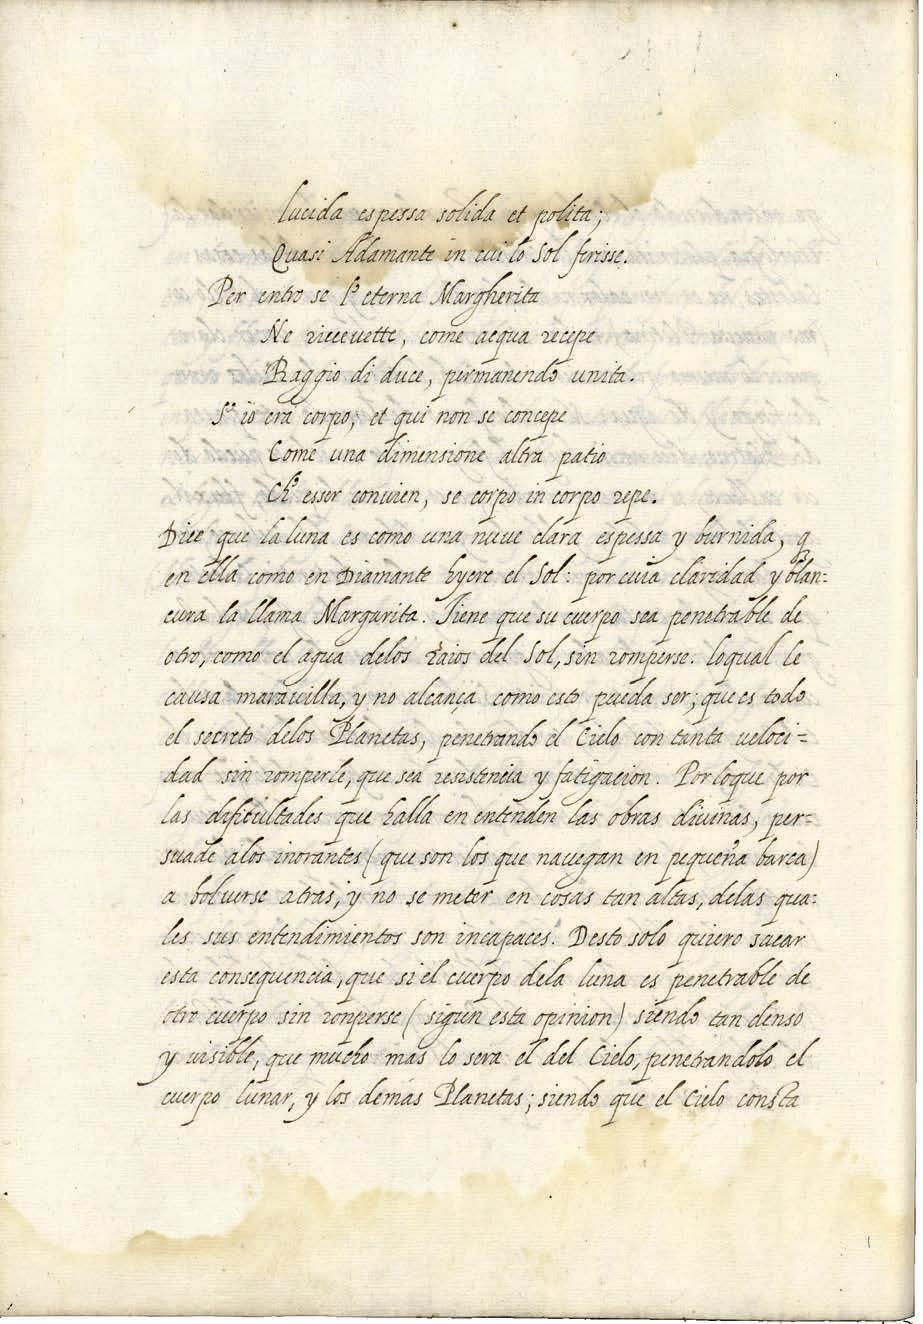 lucida espessa solida et polita;
Quasi Adamante in cui lo Sol ferisse.
Per entro se l'eterna Margherita
Ne riceuette, come acqua recepe
Raggio di duce, permanendo unita.
S'io era corpo; et qui non se concepe
Come una dimensione altra patio
Ch'esser convien, se corpo in corpo repe.
Dice que la luna es como una nuue clara espessa y burnida, q
en ella como en Diamante hyere el Sol: por cuia claridad y blan=
cura la llama Margarita. Tiene que su cuerpo sea penetrable de
otro, como el agua delos raios del Sol, sin romperse. loqual le
causa marauilla, y no alcança como esto pueda ser; que es todo
el secreto delos Planetas, penetrando el Cielo con tanta veloci=
dad sin romperle, que sea resistencia y fatigacion. Porloque por
las dificultades que halla en entenden las obras diuinas, per-
suade alos inorantes (que son los que nauegan en pequeña barca)
a boluerse atras, y no se meter en cosas tan altas, delas qua=
les sus entendimientos son incapaces. Desto solo quiero sacar
esta consequencia, que si el cuerpo dela luna es penetrable de
otro cuerpo sin ronperse (sigun esta opinion) siendo tan denso
y uisible, que mucho mas lo sera el del Cielo, penetrandolo el
cuerpo lunar, y los demás Planetas; siendo que el Cielo consta